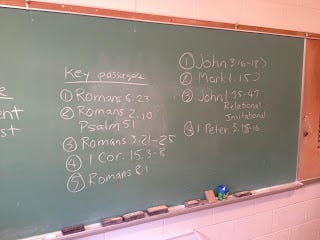 ent
st
Key passages
① Romans 6.23
② Romans 2.10
Psalm 51
③ Romans 3.21-25
④ 1 Cor. 15.3-8
⑤ Romans 8.1
① John 3.16-18
② Mark 1.15
③ John 1.35-47
Relational
Invitational
④ 1 Peter 3.15-16